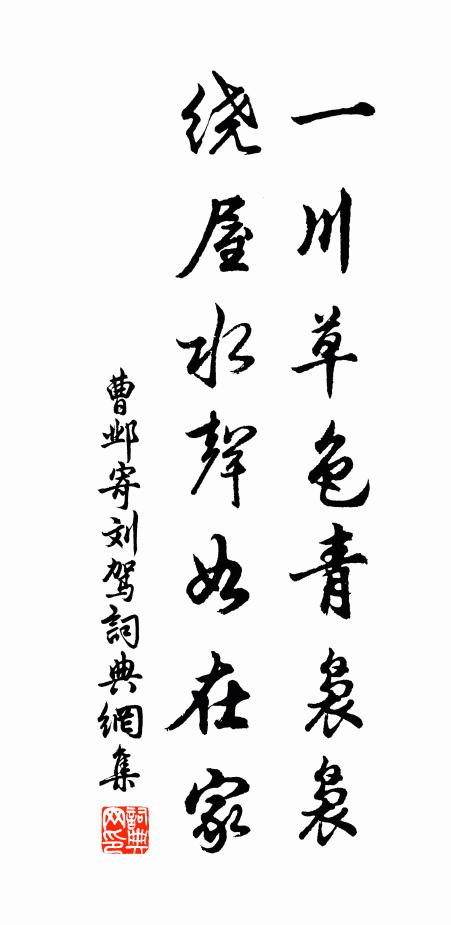 一川草色青袅袅
绕屋水聲如在家
曹邺寄刘驾詞典網集
詞典网印